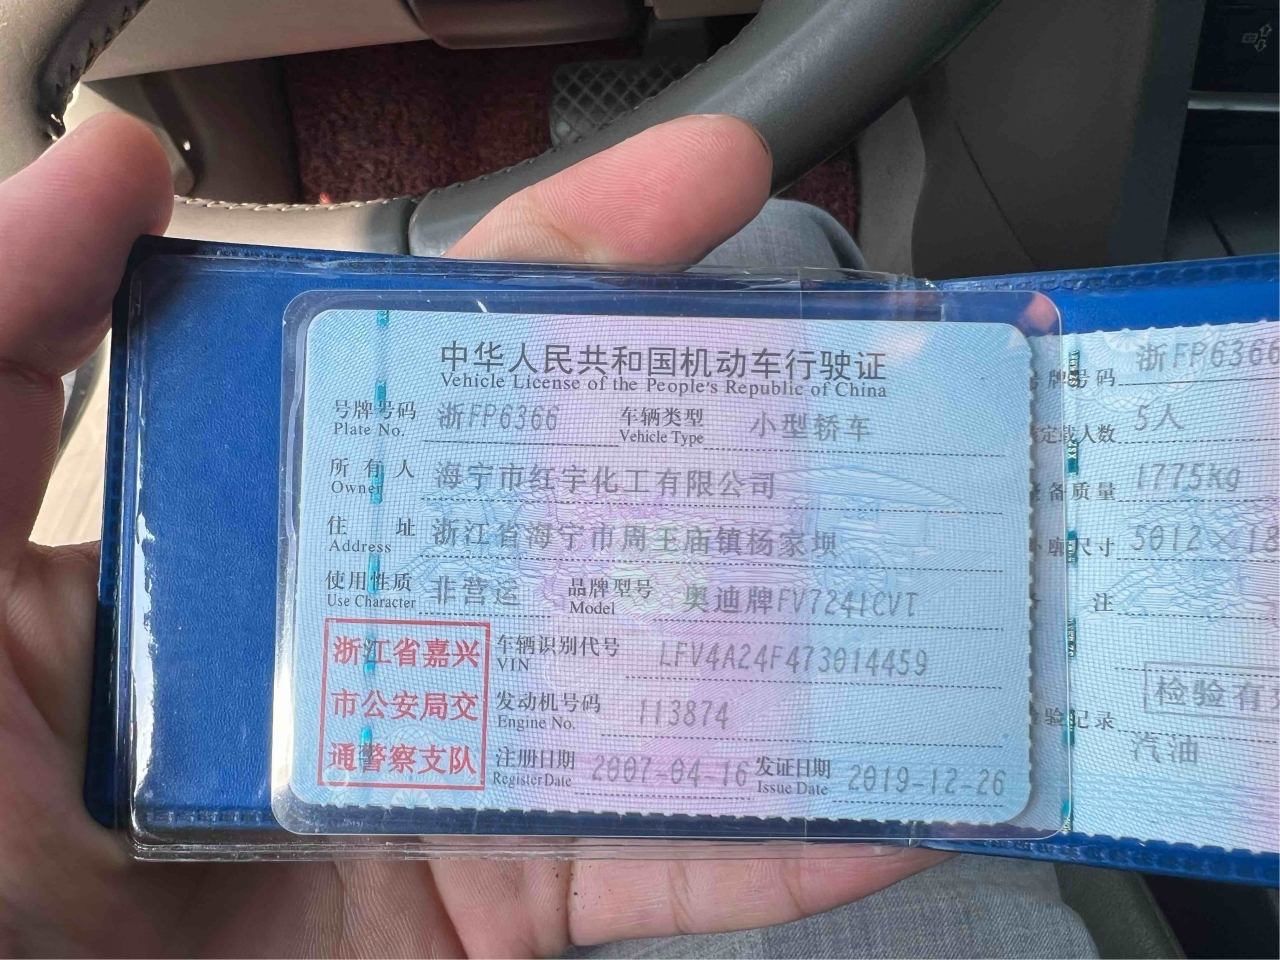 中华人民共和国机动车行驶证
Vehicle License of the People's Republic of China
号牌号码 浙FP6366 车辆类型 小型轿车
Plate No. Vehicle Type
所有人 海宁市红宇化工有限公司
Owner
住址 浙江省海宁市周王庙镇杨家坝
Address
使用性质 非营运 品牌型号 奥迪牌FV7241CVT
Use Character Model
浙江省嘉兴
市公安局交
通警察支队
车辆识别代号 LFV4A24F473014459
VIN
发动机号码 113874
Engine No.
注册日期 2007-04-16 发证日期 2019-12-26
Register Date Issue Date
牌号码 浙FP6366
定载人数 5人
备质量 1775kg
廓尺寸 5012×18
注
检验有
验记录
汽油